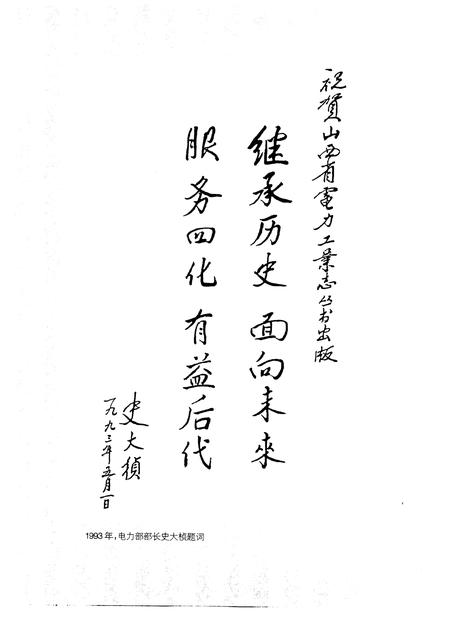 祝贺山西省電力工業志丛书出版
继承历史 面向未來
服务四化 有益后代
史大楨
一九九三年五月一日
1993年,电力部部长史大桢题词